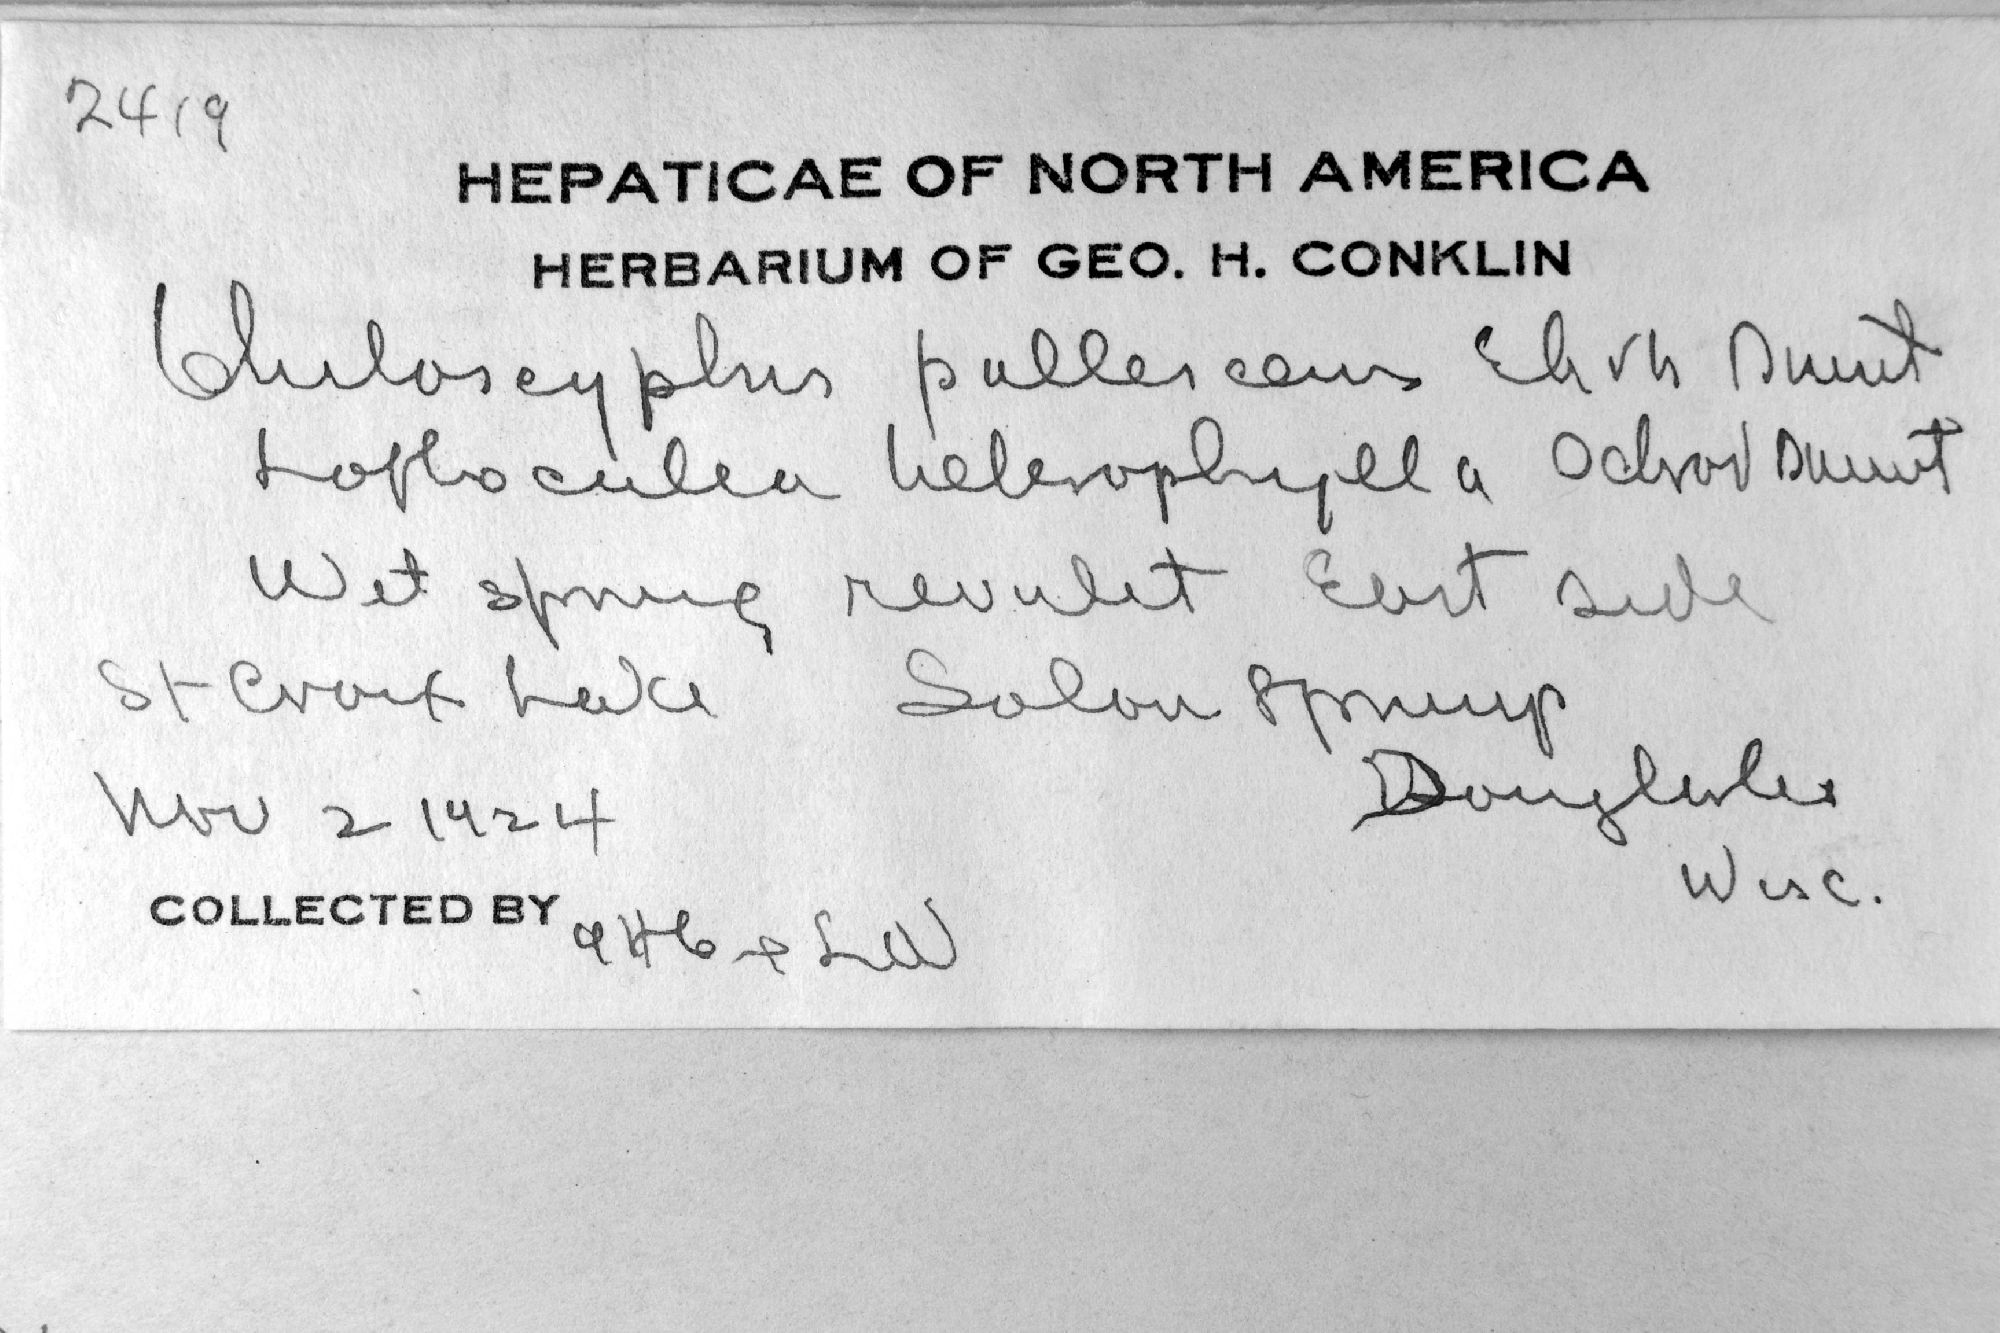 2419
HEPATICAE OF NORTH AMERICA
HERBARIUM OF GEO. H. CONKLIN
Chiloscyphus pallescens Ehrh Dumt
Lophocolea heterophylla Schrad Dumt
Wet spring revulet East side
St Croix Lake Solon Springs
Nov 2 1924
Douglas Co
Wisc.
COLLECTED BY GHC + LW